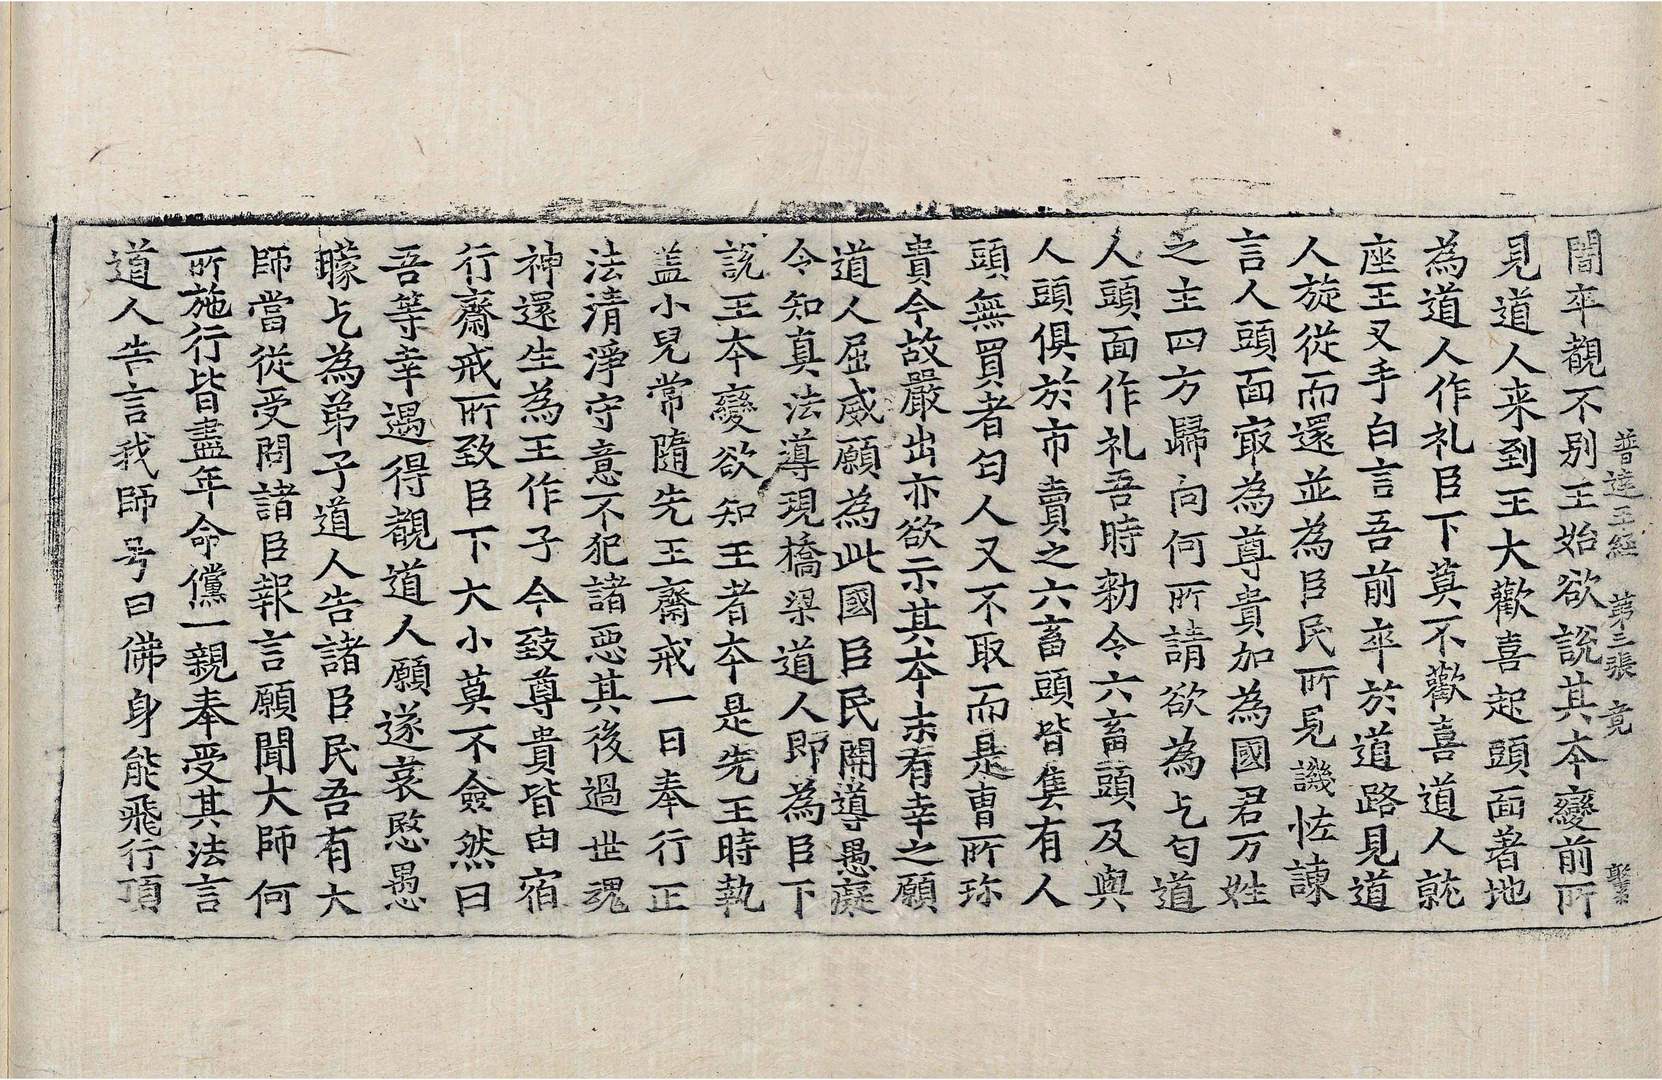 普達王經　第三張　竟　聚
闇卒覩不別王始欲說其本變前所
見道人来到王大歡喜起頭面著地
為道人作礼臣下莫不歡喜道人就
座王叉手白言吾前卒於道路見道
人旋從而還並為臣民所見譏恠諫
言人頭面㝡為尊貴加為國君万姓
之主四方歸向何所請欲為乞匂道
人頭面作礼吾時勑令六畜頭及與
人頭俱於市賣之六畜頭皆售有人
頭無買者匂人又不取而是曺所珎
貴今故嚴出亦欲示其本末有幸之願
道人屈威願為此國臣民開導愚癡
令知真法導現橋梁道人即為臣下
說王本變欲知王者本是先王時執
盖小兒常隨先王齋戒一日奉行正
法清淨守意不犯諸惡其後過世魂
神還生為王作子今致尊貴皆由宿
行齋戒所致臣下大小莫不僉然曰
吾等幸遇得覩道人願遂哀愍愚
矇乞為弟子道人告諸臣民吾有大
師當從受問諸臣報言願聞大師何
所施行皆盡年命儻一親奉受其法言
道人告言我師号曰佛身能飛行頂